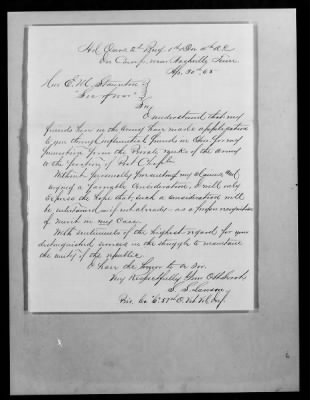 Hd Qurs 2d Brig 1st Div 4th A.C.
In Camp, near Nashville Tenn
Ap. 30th 65
Hon E. M. Staunton
Sec of War
Sir
I understand that my
friends here in the Army have made application
to you through influential friends in Ohio for my
promotion from the Private ranks of the Army
to the position of Post Chaplin
Without personally presenting my claims
myself a favorable consideration, I will only
express the hope that such a consideration will
be entertained – if not already – as a proper recognition
of merit in my case.
With sentiments of the highest regard for your
distinguished services in the struggle to maintain
the unity of the republic
I have the honor to be Sir
Very Respectfully Your Obt Servt,
S. S. Lawson
Priv. Co "E" 51st O. Vet Vol Inf.